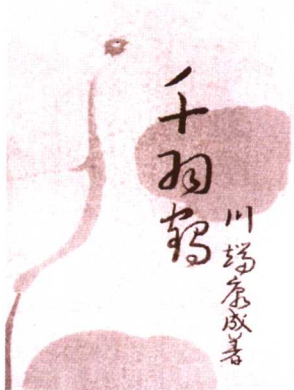 千羽鶴
川端康成著